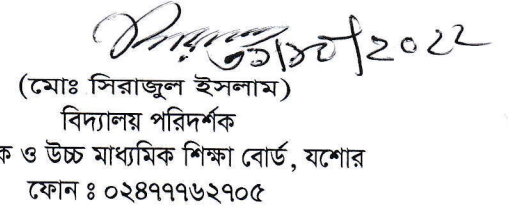 ২০২২
(মোঃ সিরাজুল ইসলাম)
বিদ্যালয় পরিদর্শক
ক ও উচ্চ মাধ্যমিক শিক্ষা বোর্ড, যশোর
ফোন ঃ ০২৪৭৭৭৬২৭০৫